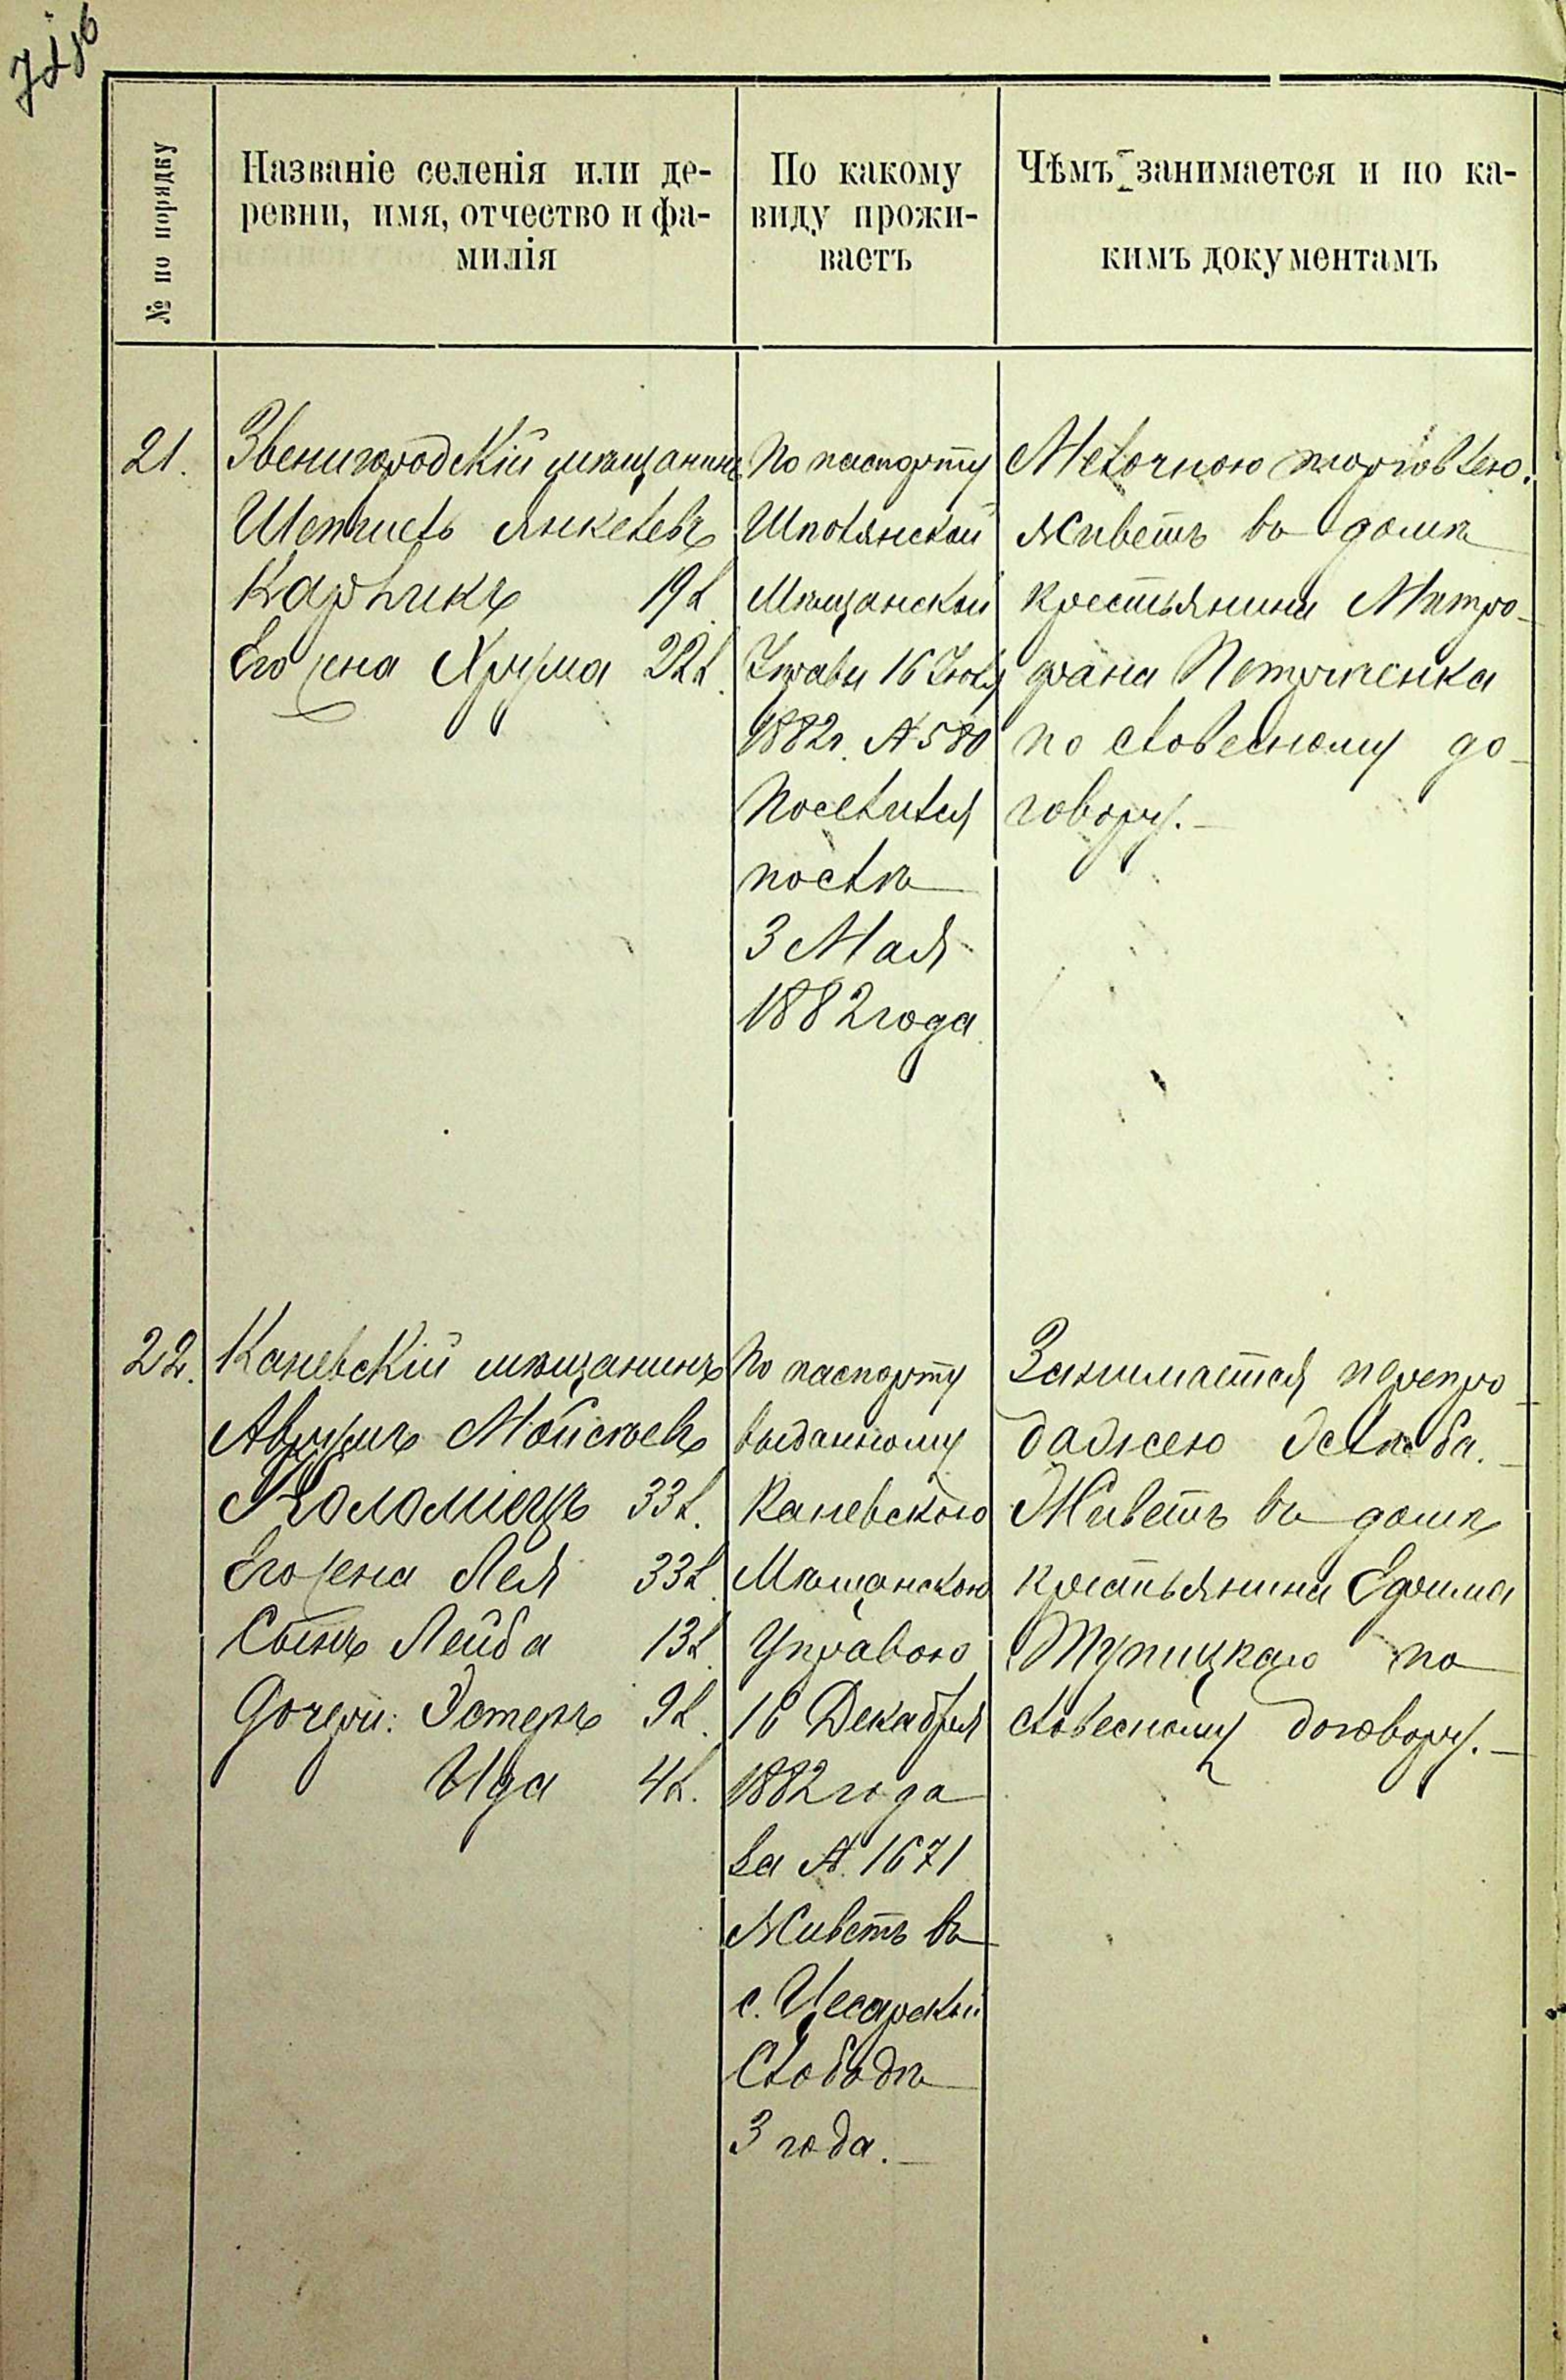 № по порядку
Названіе селенія или де-
ревни, имя, отчество и фа-
милія
По какому
виду прожи-
ваетъ
Чѣмъ занимается и по ка-
кимъ документамъ
21.
Звенигородскій мѣщанинъ
Шепшель Янкелевъ
Карликъ 19 л.
Его жена Хрума 22 л.
По паспорту
Шполянской
Мѣщанской
Управы 16 Іюля
1882 г. № 580
Поселился
послѣ
3 Мая
1882 года
Мелочною торговлею.
Живетъ въ домѣ
крестьянина Митро-
фана Петриченка
по словесному до-
говору. —
22.
Каневскій мѣщанинъ
Аврумъ Мойсеевъ
Коломіецъ 33 л.
Его жена Лея 33 л.
Сынъ Лейба 13 л.
Дочери: Эстеръ 9 л.
Ида 4 л.
По паспорту
выданному
Каневскою
Мѣщанскою
Управою
16 Декабря
1882 года
за № 1671
Живетъ въ
с. Цесарской
Слободѣ
3 года. —
Занимается перепро-
дажею хлѣба. —
Живетъ въ домѣ
крестьянина Ефима
Тупицкаго по
словесному договору. —